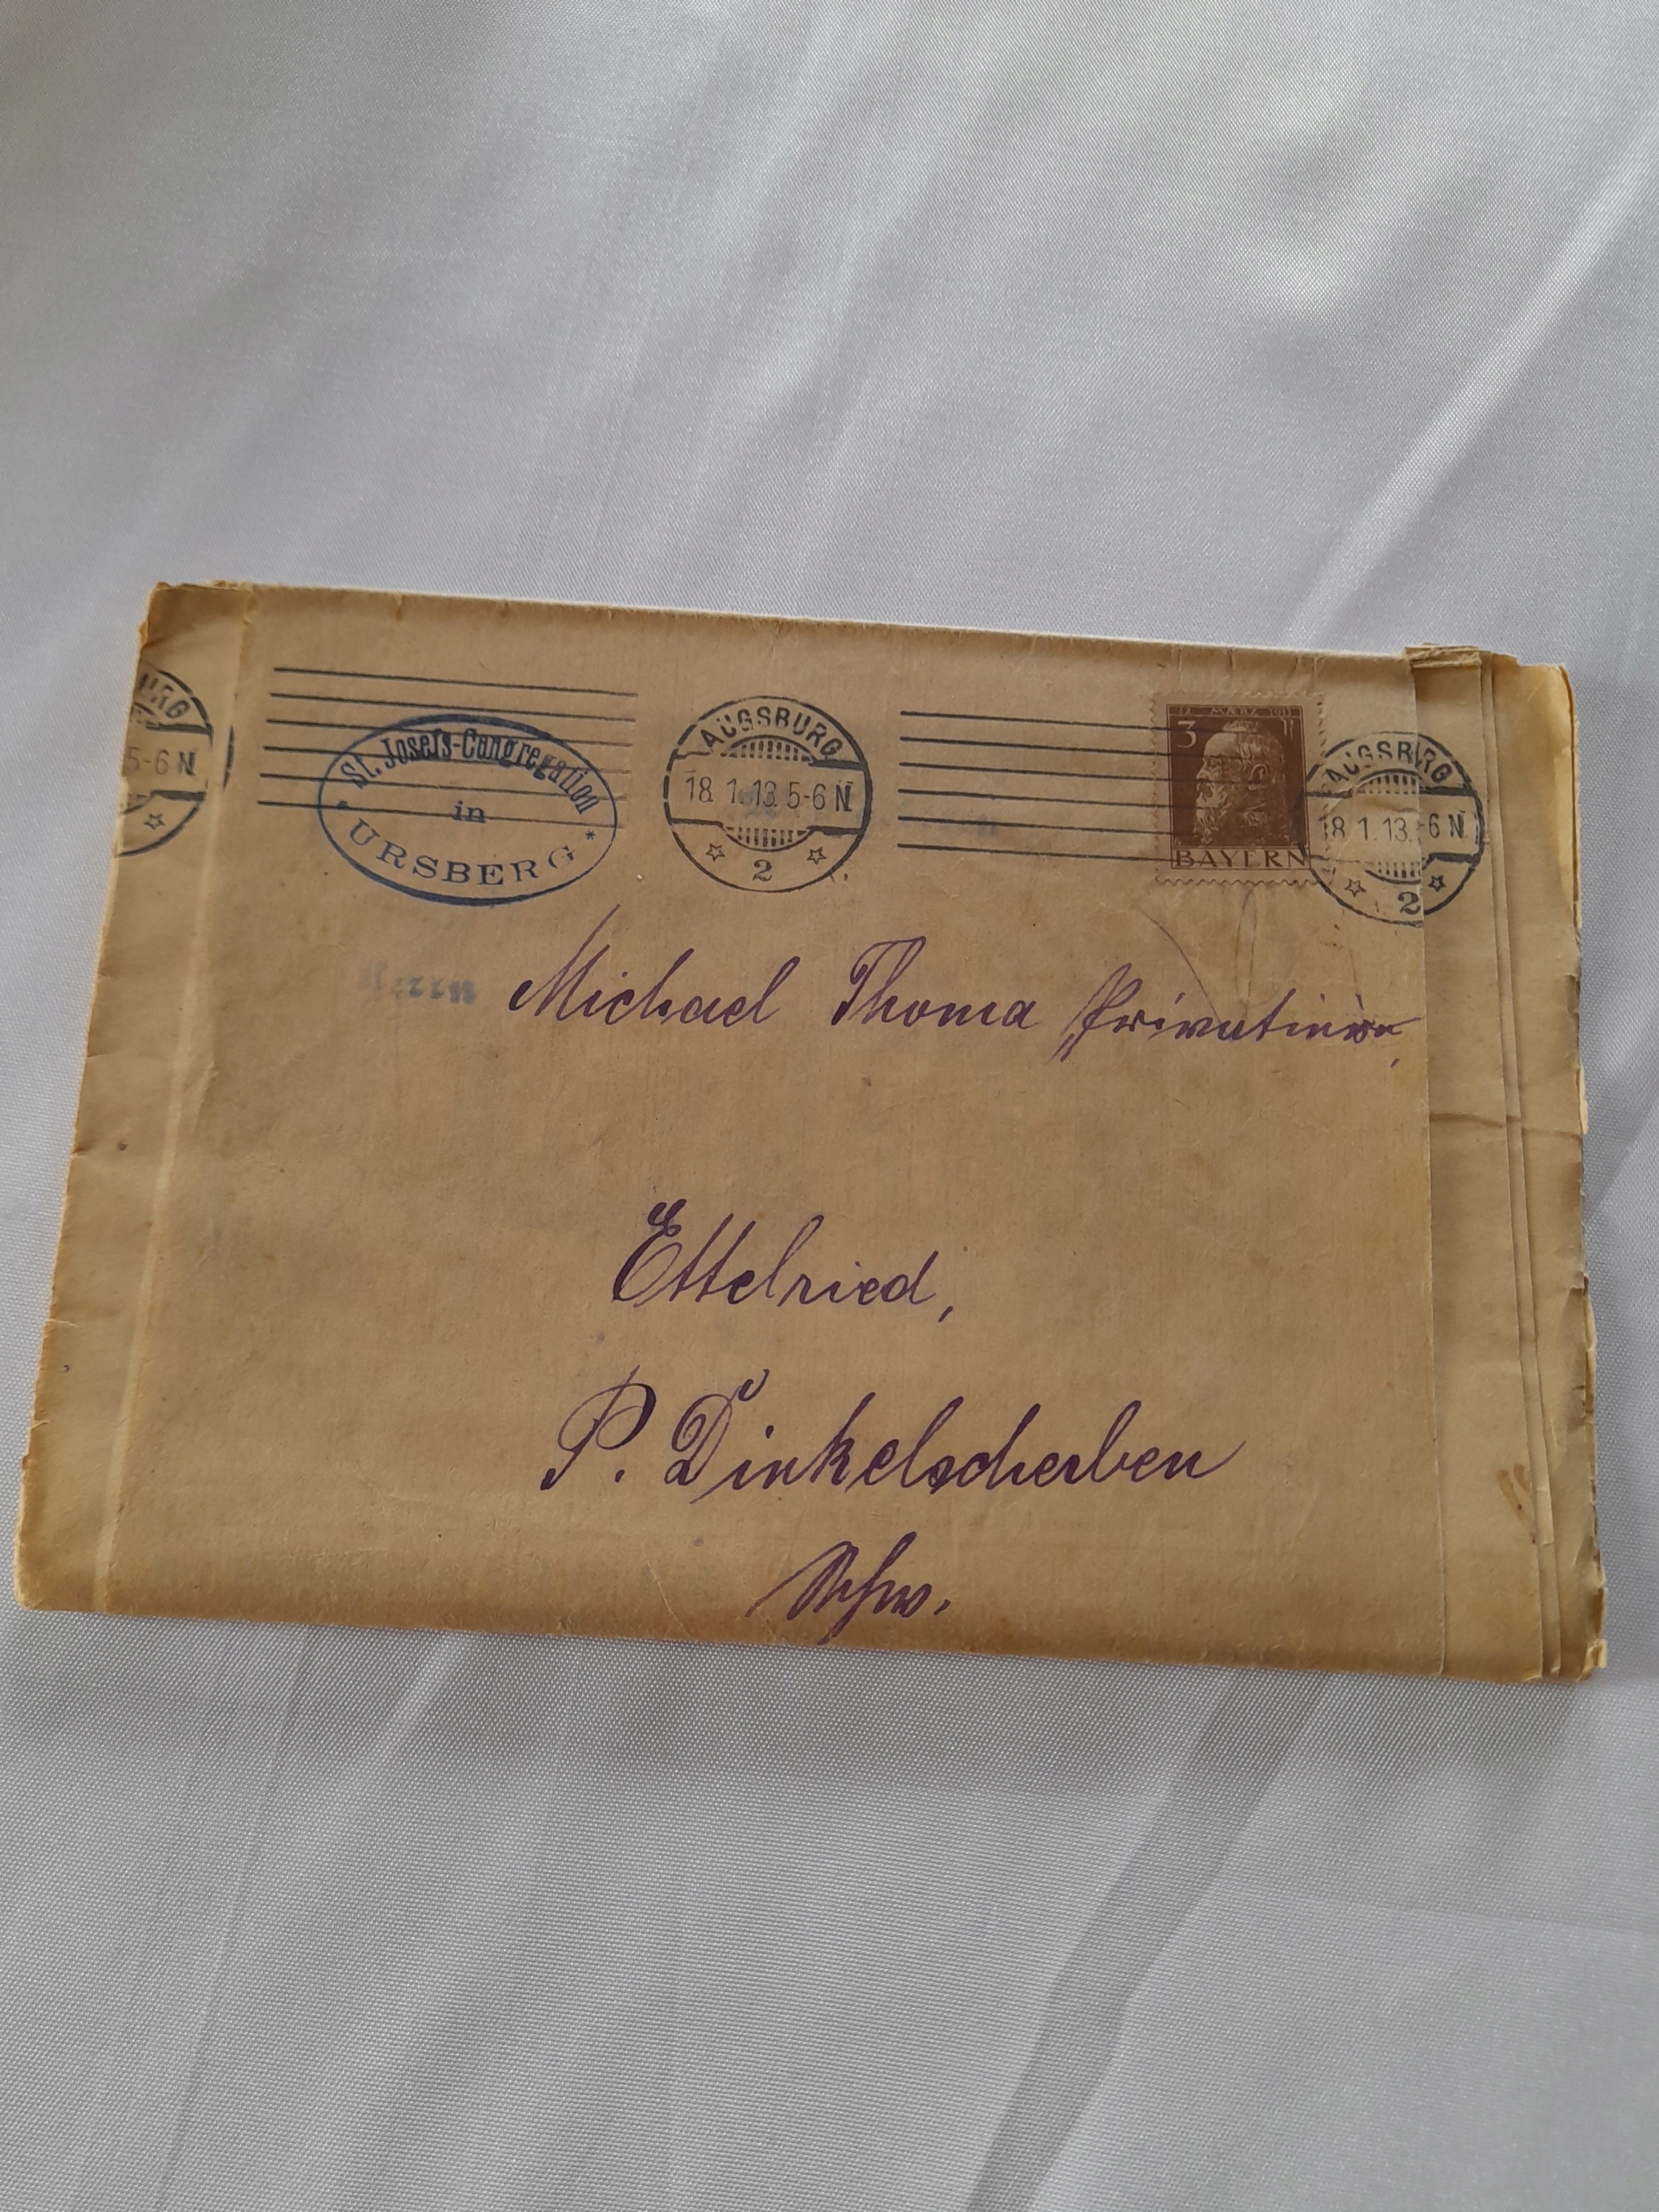 URG
5-6 N
St. Josefs-Congregation
in
URSBERG
AUGSBURG
18. 1. 13. 5-6 N
2
12. MÄRZ 1911
3
BAYERN
AUGSBURG
18. 1. 13. -6 N
2
Michael Thoma
Ettelried,
P. Dinkelscherben
Schw.